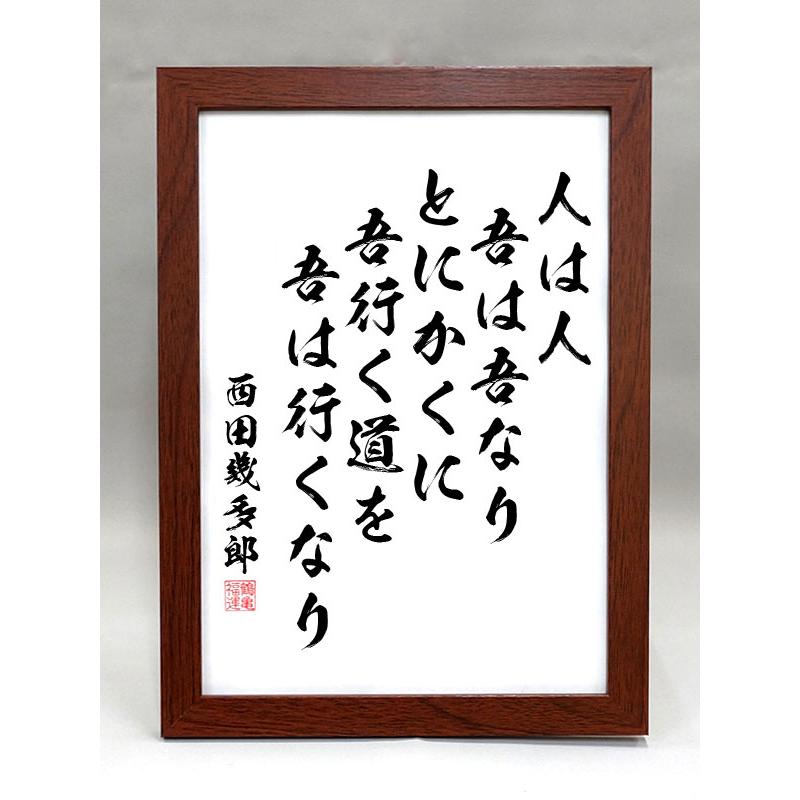 人は人
吾は吾なり
とにかくに
吾行く道を
吾は行くなり
西田幾多郎
鶴亀
福運